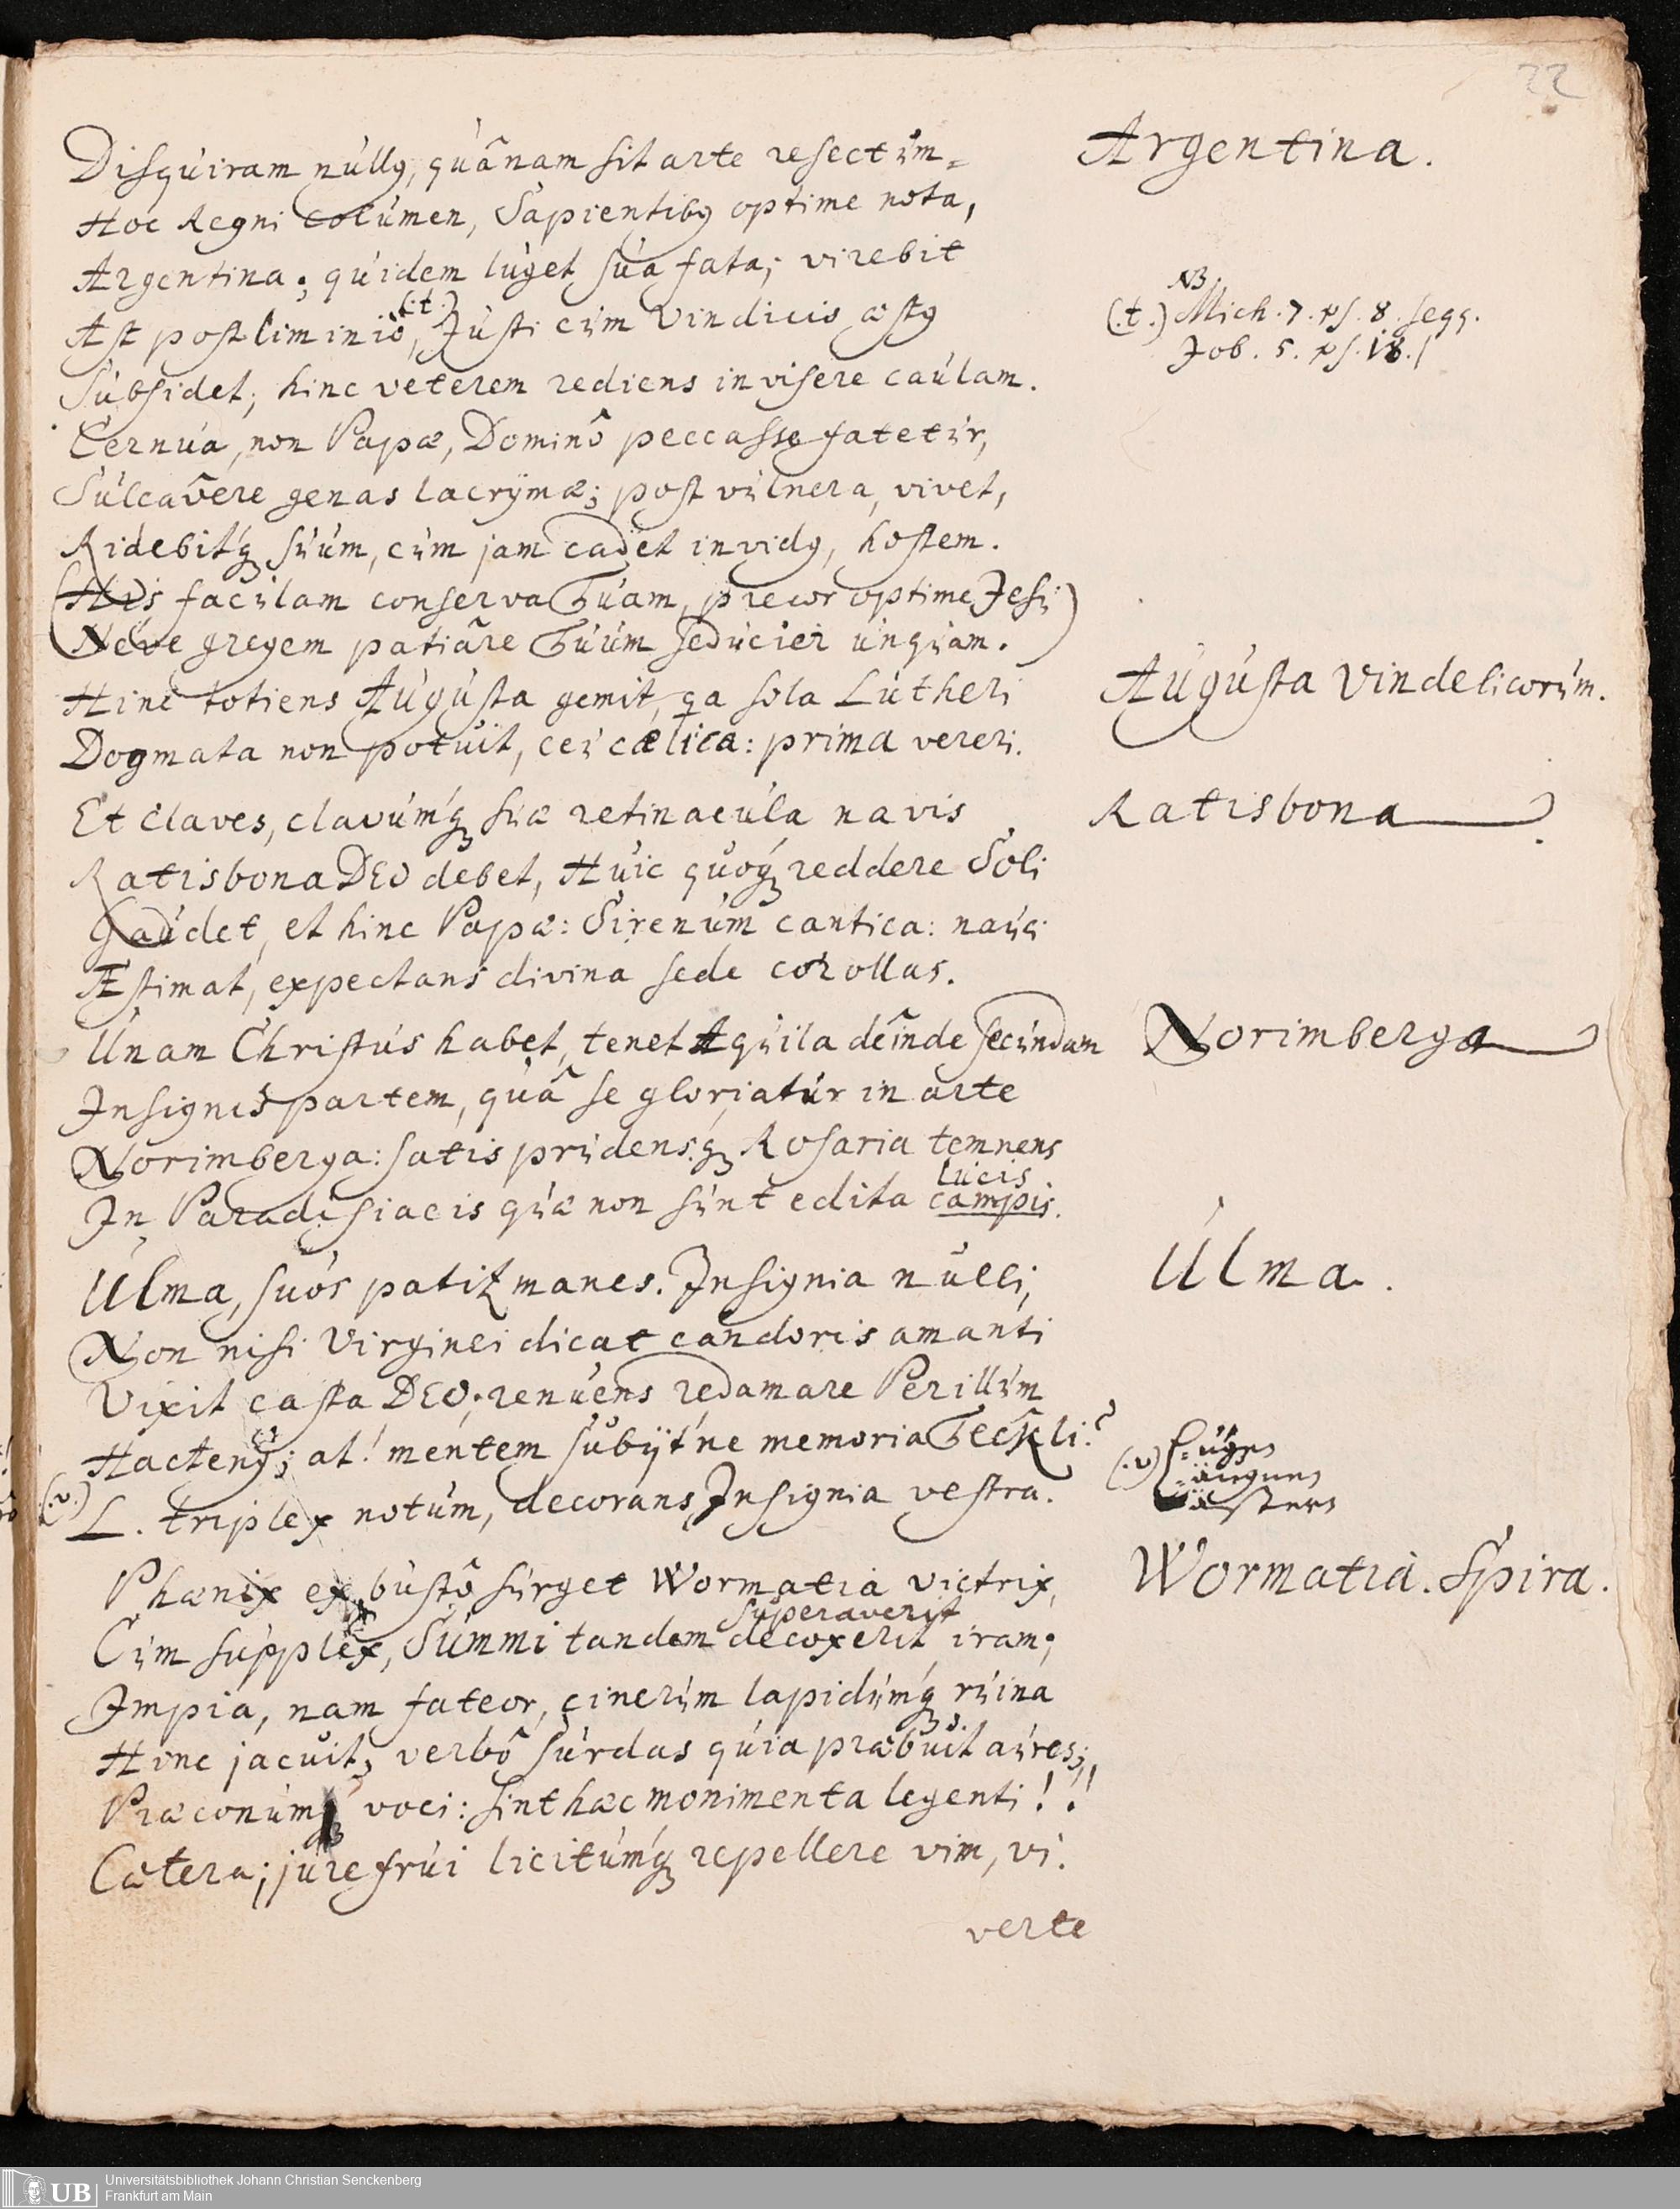 22
Disquiram nullꝰ, quânam sit arte resectum
Argentina.
Hoc Regni columen, Sapientibꝰ optime nota,
Argentina; quidem luget sua fata; virebit
Ast postliminiô, (.t.) Justi cum Vindicis æstꝰ
NB.
(.t.) Mich. 7. ps. 8. seqq.
Job. 5. ps. 18.
Subsidet; hinc veterem rediens invisere caulam.
Cernua, non Papæ, Dominô peccasse fatetur,
Sulcavêre genas lacrÿmæ; post vulnera, vivet,
Ridebitq́ꝫ suum, cum jam cadet invidꝰ, hostem.
(His faculam conserva Tuam, precor optime Jesu
Neve gregem patiâre Tuum seducier unquam.)
Hinc totiens Augusta gemit, qa sola Lutheri
Augusta Vindelicorum.
Dogmata non potuit, ceu cælica: prima vereri.
Et claves, clavumq́ꝫ suæ retinacula navis
Ratisbona.
Ratisbona DEO debet, Huic quoq́ꝫ reddere Soli
Gaudet, et hinc Papæ: Sirenum cantica: nauci
Æstimat, expectans divina sede corollas.
Unam Christus habet, tenet Aquila deînde secundam
Norimberga
Insignis partem, quâ se gloriatur in arte
Norimberga: satis prudensq́ꝫ Rosaria temnens
lucis
In Paradisiacis quæ non sunt edita campis.
Ulma, suos patitꝛ manes. Insignia nulli,
Ulma.
Non nisi Virginei dicat candoris amanti
Vixit casta DEO; renuens redamare Perillum
Hactenꝰ; at! mentem subijt'ne memoria Teckli?
(.v.) L. triplex notum, decorans Insignia vestra.
(.v.)
Phænix ex bustô surget Wormatia victrix,
Wormatia. Spira.
superaverit
Cum supplex, Summi tandem decoxerit iram;
Impia, nam fateor, cinerum lapidumq́ꝫ ruina
Hinc jacuit, verbô surdas quia præbuit aures;
Præconum voci: sint hæc monimenta legenti!!
Cætera; jure frui licitumq́ꝫ repellere vim, vi.
verte
UB
Universitätsbibliothek Johann Christian Senckenberg
Frankfurt am Main